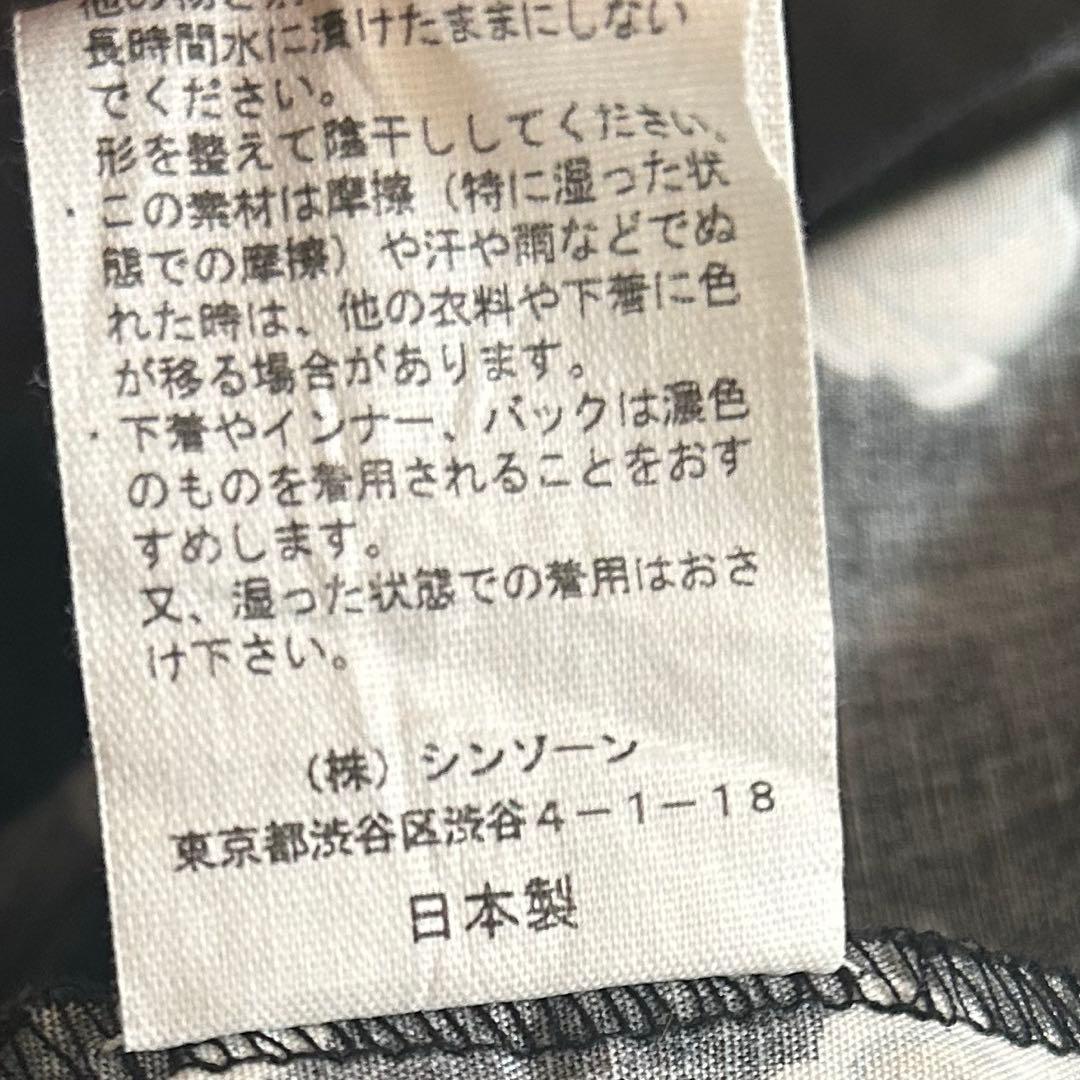 長時間水に漬けたままにしない
でください。
形を整えて陰干ししてください。
・この素材は摩擦（特に湿った状
態での摩擦）や汗や雨などでぬ
れた時は、他の衣料や下着に色
が移る場合があります。
・下着やインナー、バックは濃色
のものを着用されることをおす
すめします。
又、湿った状態での着用はおさ
け下さい。
（株）シンゾーン
東京都渋谷区渋谷４－１－１８
日本製